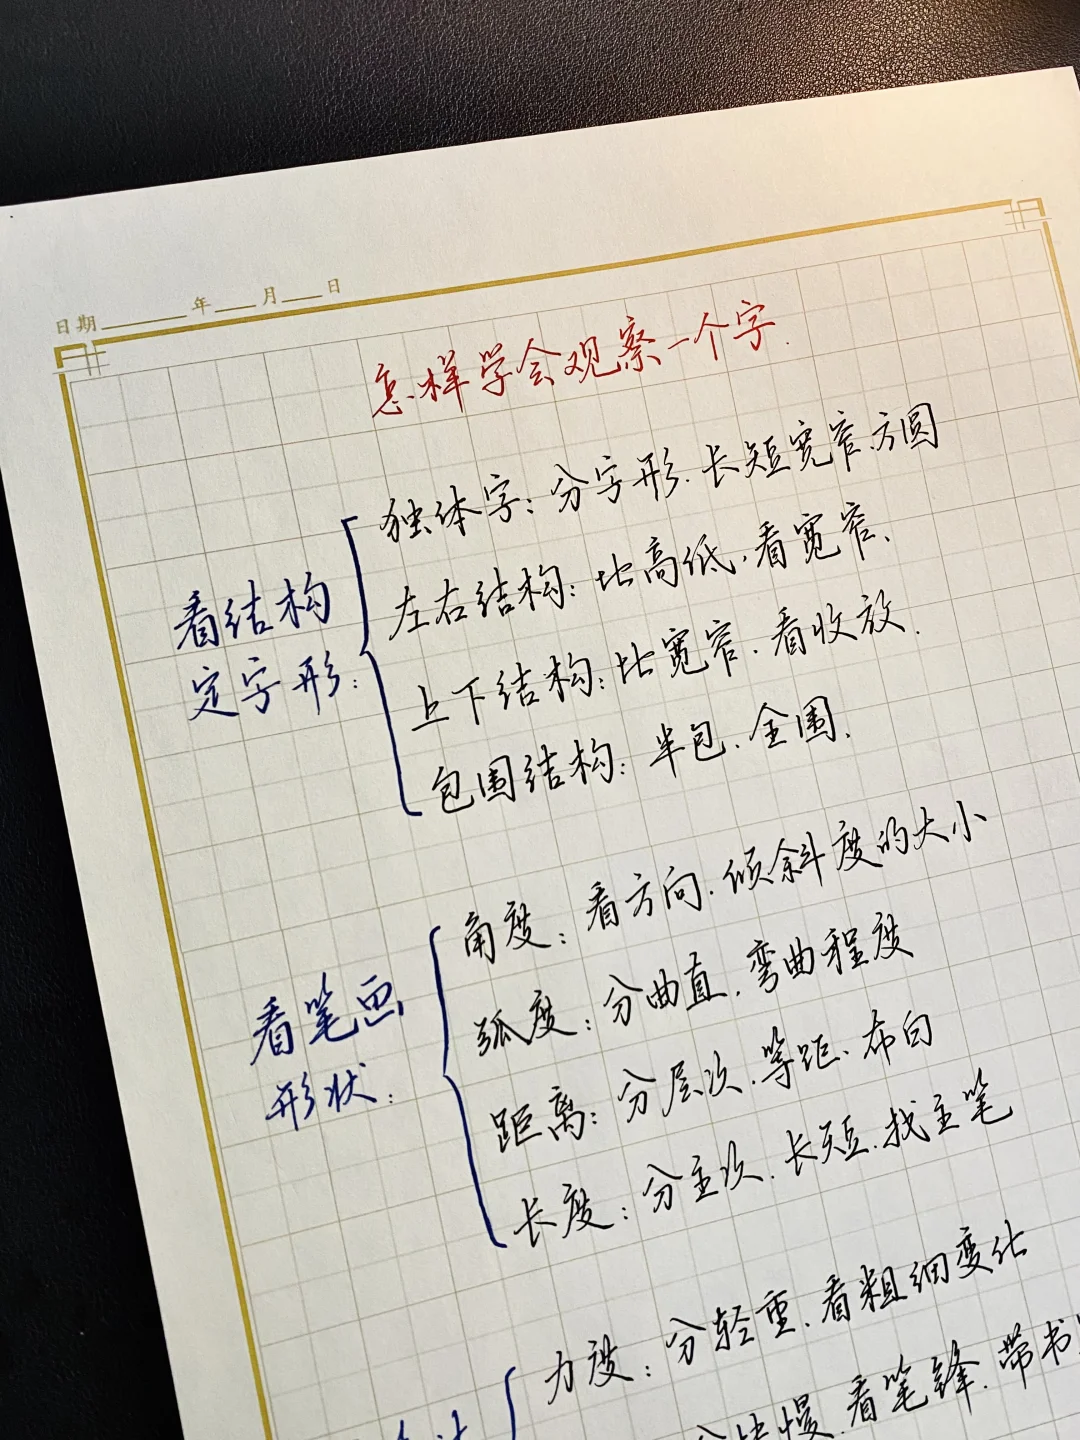 日期 年 月 日
怎样学会观察一个字.
看结构
定字形:
独体字: 分字形. 长短宽窄.方圆
左右结构: 比高低.看宽窄.
上下结构: 比宽窄.看收放.
包围结构: 半包.全围.
看笔画
形状:
角度: 看方向.倾斜度的大小
弧度: 分曲直.弯曲程度
距离: 分层次.等距.布白
长度: 分主次.长短.找主笔
力度: 分轻重.看粗细变化
慢.看笔锋.带书